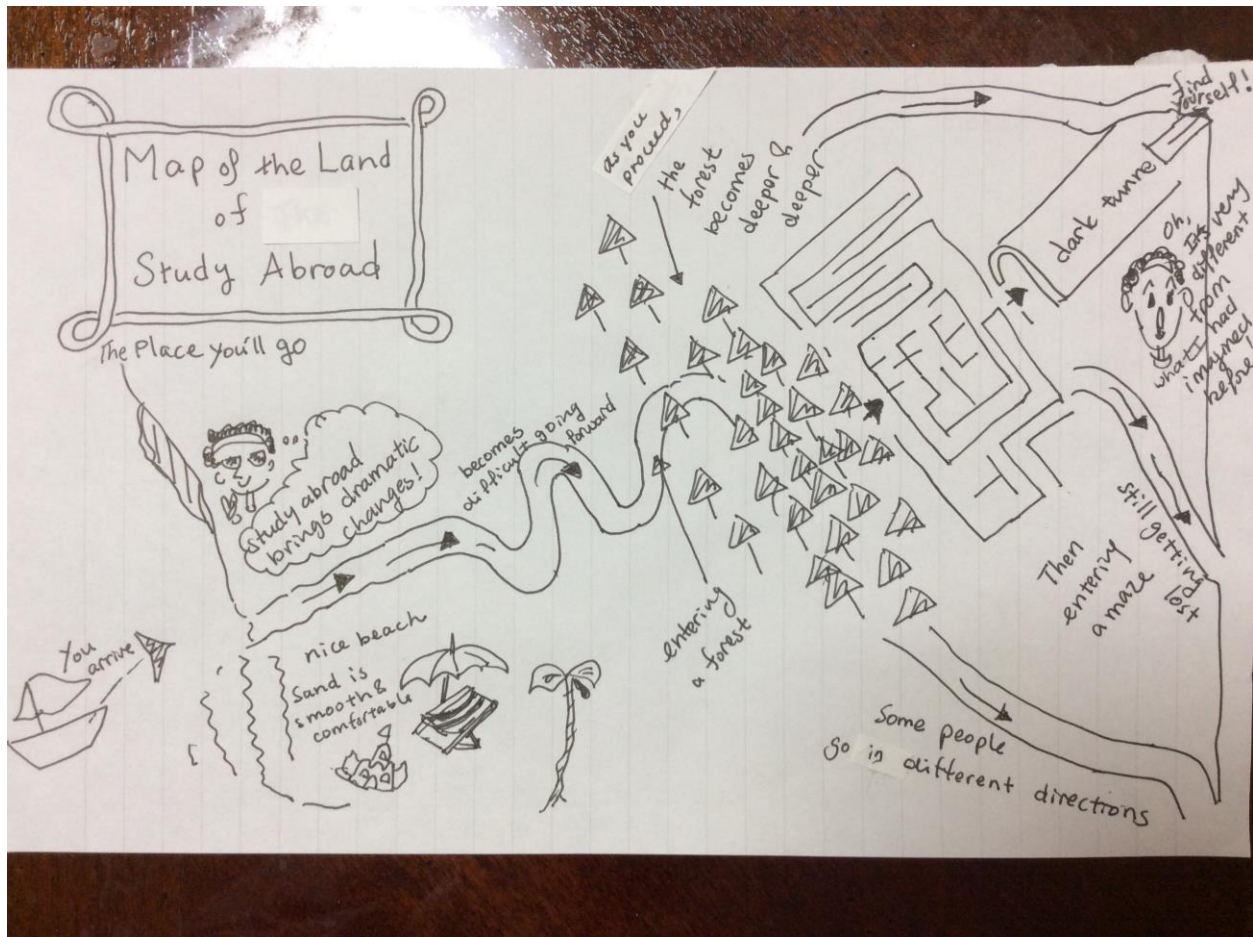 Map of the Land
of
Study Abroad
The Place you'll go
study abroad
brings dramatic
changes!
You
arrive
nice beach
Sand is
smooth &
comfortable
becomes
difficult going
forward
entering
a forest
as you
proceed,
the
forest
becomes
deeper &
deeper
Then
entering
a maze
still getting
lost
Some people
go in different directions
dark tunnel
find
yourself!
Oh,
It's very
different
from
what I had
imagined
before!